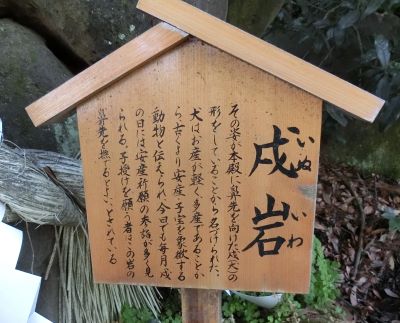 戌岩
いぬ いわ
その姿が本殿に鼻先を向けた戌(犬)の
形をしていることから名づけられた。
犬はお産が軽く多産であることか
ら、古くより安産、子宝を象徴する
動物と伝えられ、今日でも毎月戌
の日には安産祈願の参詣が多く見
られる。子授けを願う者はこの岩の
鼻先を撫でるとよいとされている